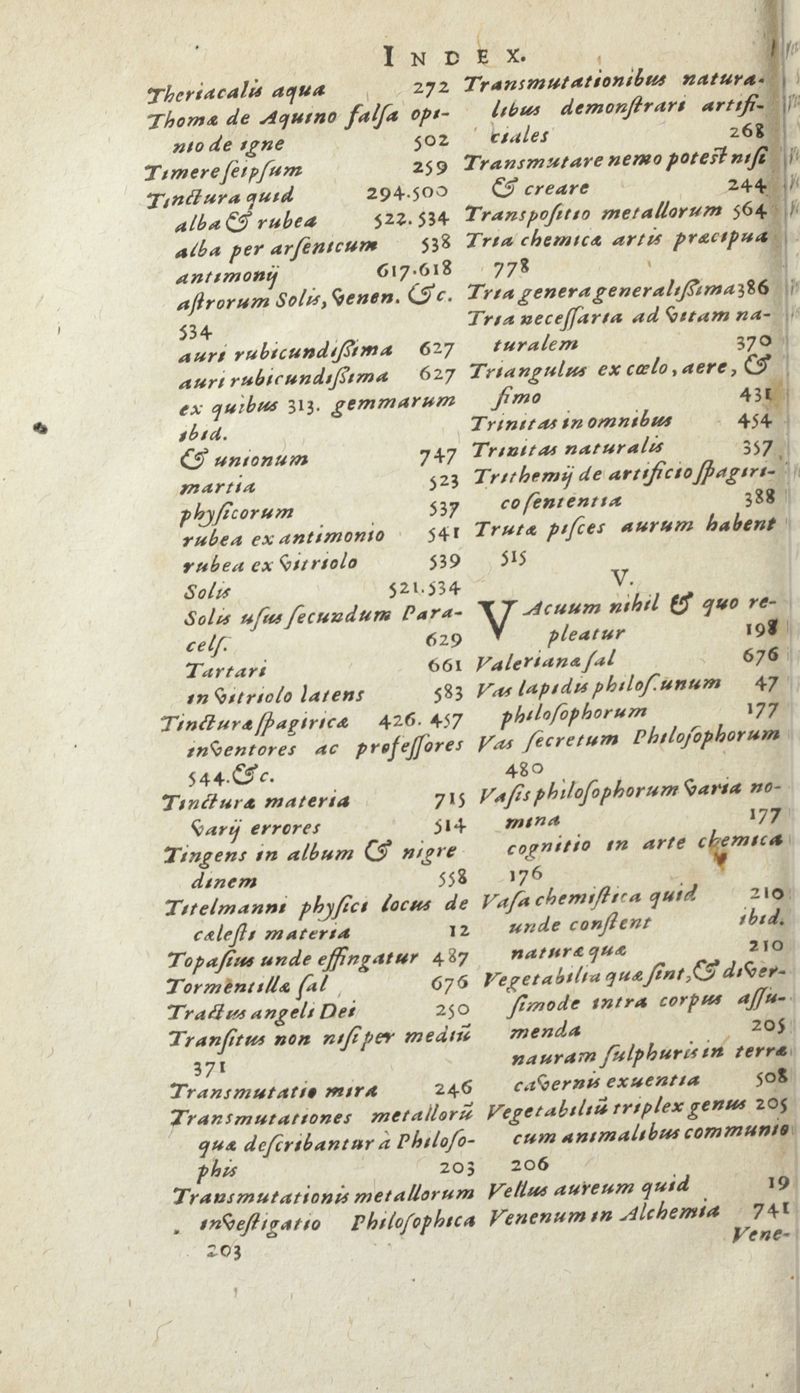 INDEX.
Theriacalis aqua 272
Thomæ de Aquino falſa opi-
nio de igne 502
Timere ſeipſum 259
Tinctura quid 294.500
alba & rubea 522.534
alba per arſenicum 538
antimonij 617.618
aſtrorum Solis, Venen. &c.
534
auri rubicundiſſima 627
auri rubicundiſſima 627
ex quibus 313. gemmarum
ibid.
& unionum 747
martia 523
phyſicorum 537
rubea ex antimonio 541
rubea ex vitriolo 539
Solis 521.534
Solis uſus ſecundum Para-
celſ. 629
Tartari 661
in vitriolo latens 583
Tincturæ ſpagirica 426. 457
inventores ac profeſſores
544.&c.
Tincturæ materia 715
varij errores 514
Tingens in album & nigre
dinem 558
Titelmanni phyſici locus de
cæleſti materia 12
Topaſius unde effingatur 487
Tormentillæ ſal 676
Tractus angeli Dei 250
Tranſitus non niſi per mediũ
371
Transmutatio mira 246
Transmutationes metallorũ
quæ deſcribantur à Philoſo-
phis 203
Transmutationis metallorum
inveſtigatio Philoſophica
203
Transmutationibus natura-
libus demonſtrari artifi-
ciales 268
Transmutare nemo poteſt niſi
& creare 244
Transpoſitio metallorum 564
Tria chemicæ artis præcipua
778
Tria genera generaliſſima 386
Tria neceſſaria ad vitam na-
turalem 370
Triangulus ex cœlo, aere, &
fimo 431
Trinitas in omnibus 454
Trinitas naturalis 357
Trithemij de artificio ſpagiri-
co ſententia 388
Trutæ piſces aurum habent
515
V.
VAcuum nihil & quo re-
pleatur 198
Valeriana ſal 676
Vas lapidis philoſ. unum 47
philoſophorum 177
Vas ſecretum Philoſophorum
480
Vaſis philoſophorum varia no-
mina 177
cognitio in arte chemica
176
Vaſa chemiſtica quid 210
unde conſtent ibid.
naturæ quæ 210
Vegetabilia quæ ſint, & diver-
ſimode intra corpus aſſu-
menda 205
nauram ſulphuris in terræ
cavernis exuentia 508
Vegetabiliũ triplex genus 205
cum animalibus communio
206
Vellus aureum quid 19
Venenum in Alchemia 741
Vene-